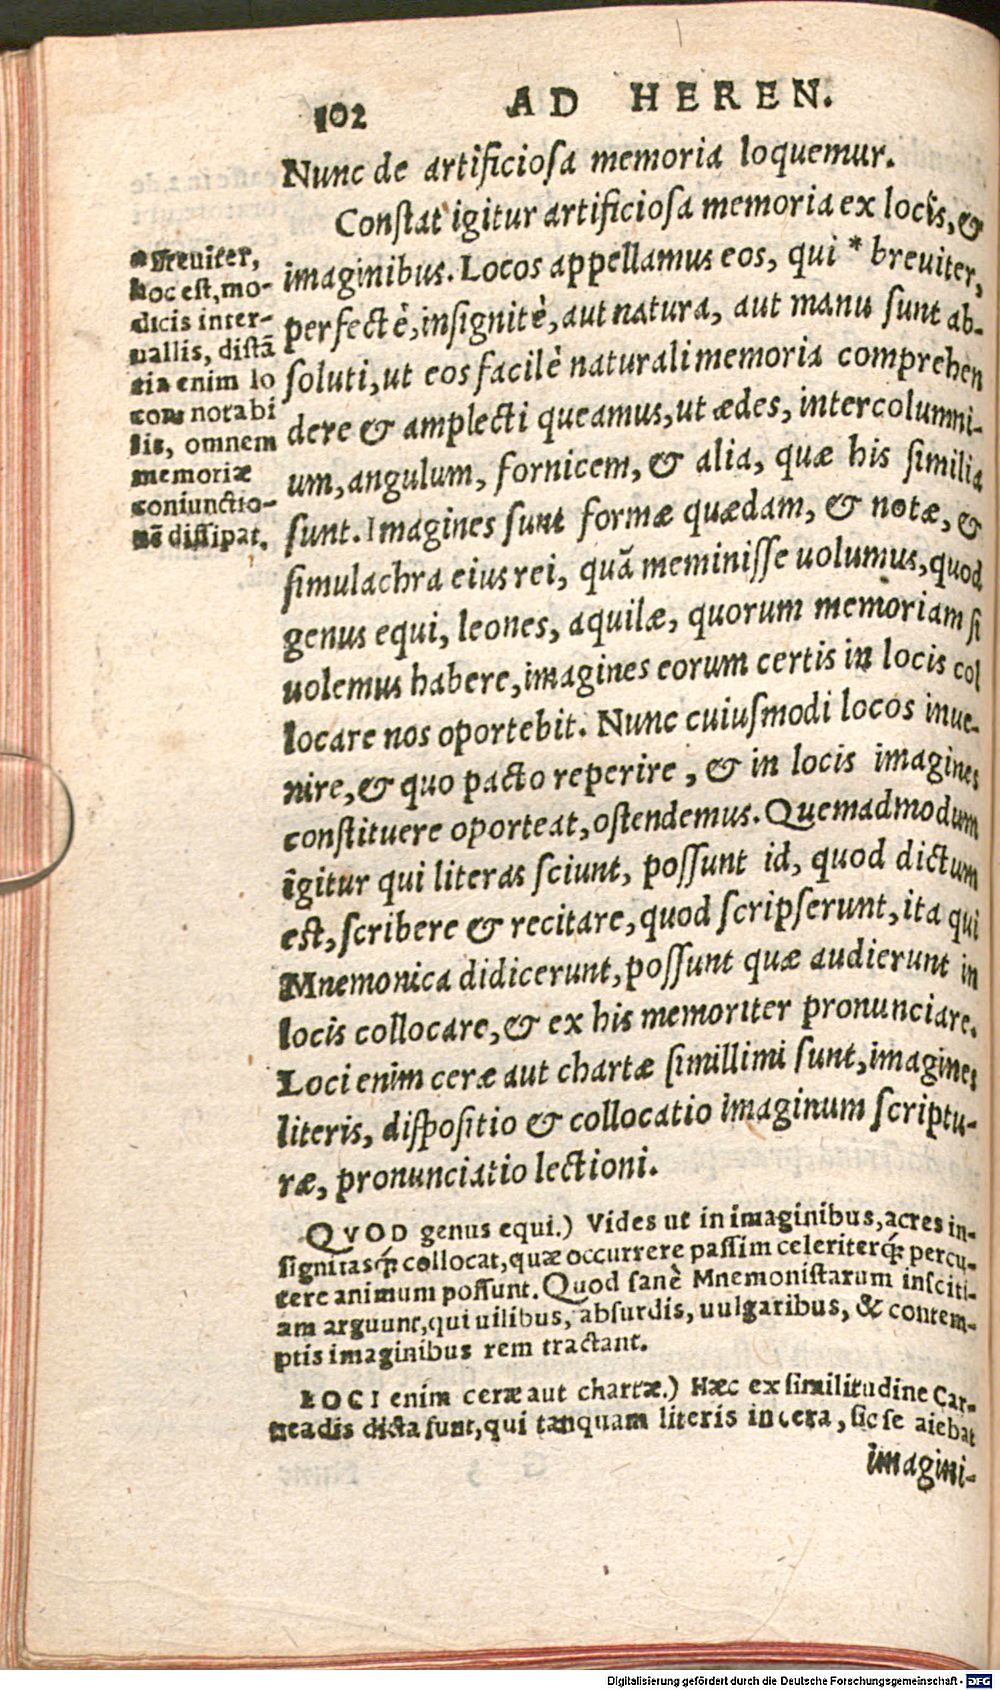 102 AD HEREN.
Nunc de artificiosa memoria loquemur.
Constat igitur artificiosa memoria ex locis, &
imaginibus. Locos appellamus eos, qui * breuiter,
perfectè, insignitè, aut natura, aut manu sunt ab-
soluti, ut eos facilè naturali memoria comprehen
dere & amplecti queamus, ut ædes, intercolumni-
um, angulum, fornicem, & alia, quæ his similia
sunt. Imagines sunt formæ quædam, & notæ, &
simulachra eius rei, quã meminisse uolumus, quod
genus equi, leones, aquilæ, quorum memoriam si
uolemus habere, imagines eorum certis in locis col
locare nos oportebit. Nunc cuiusmodi locos inue-
nire, & quo pacto reperire, & in locis imagines
constituere oporteat, ostendemus. Quemadmodum
igitur qui literas sciunt, possunt id, quod dictum
est, scribere & recitare, quod scripserunt, ita qui
Mnemonica didicerunt, possunt quæ audierunt in
locis collocare, & ex his memoriter pronunciare.
Loci enim ceræ aut chartæ simillimi sunt, imagines
literis, dispositio & collocatio imaginum scriptu-
ræ, pronunciatio lectioni.
* Breuiter,
hoc est, mo-
dicis inter-
uallis, distã
tia enim lo
corum notabi
lis, omnem
memoriæ
coniunctio-
nẽ dissipat.
QVOD genus equi.) Vides ut in imaginibus, acres in-
signitasq́; collocat, quæ occurrere passim celeriterq́; percu-
tere animum possunt. Quod sanè Mnemonistarum insciti-
am arguunt, qui uilibus, absurdis, uulgaribus, & contem-
ptis imaginibus rem tractant.
LOCI enim ceræ aut chartæ.) Hæc ex similitudine Car-
neadis dicta sunt, qui tanquam literis in cera, sic se aiebat
imagini-
Digitalisierung gefördert durch die Deutsche Forschungsgemeinschaft - DFG